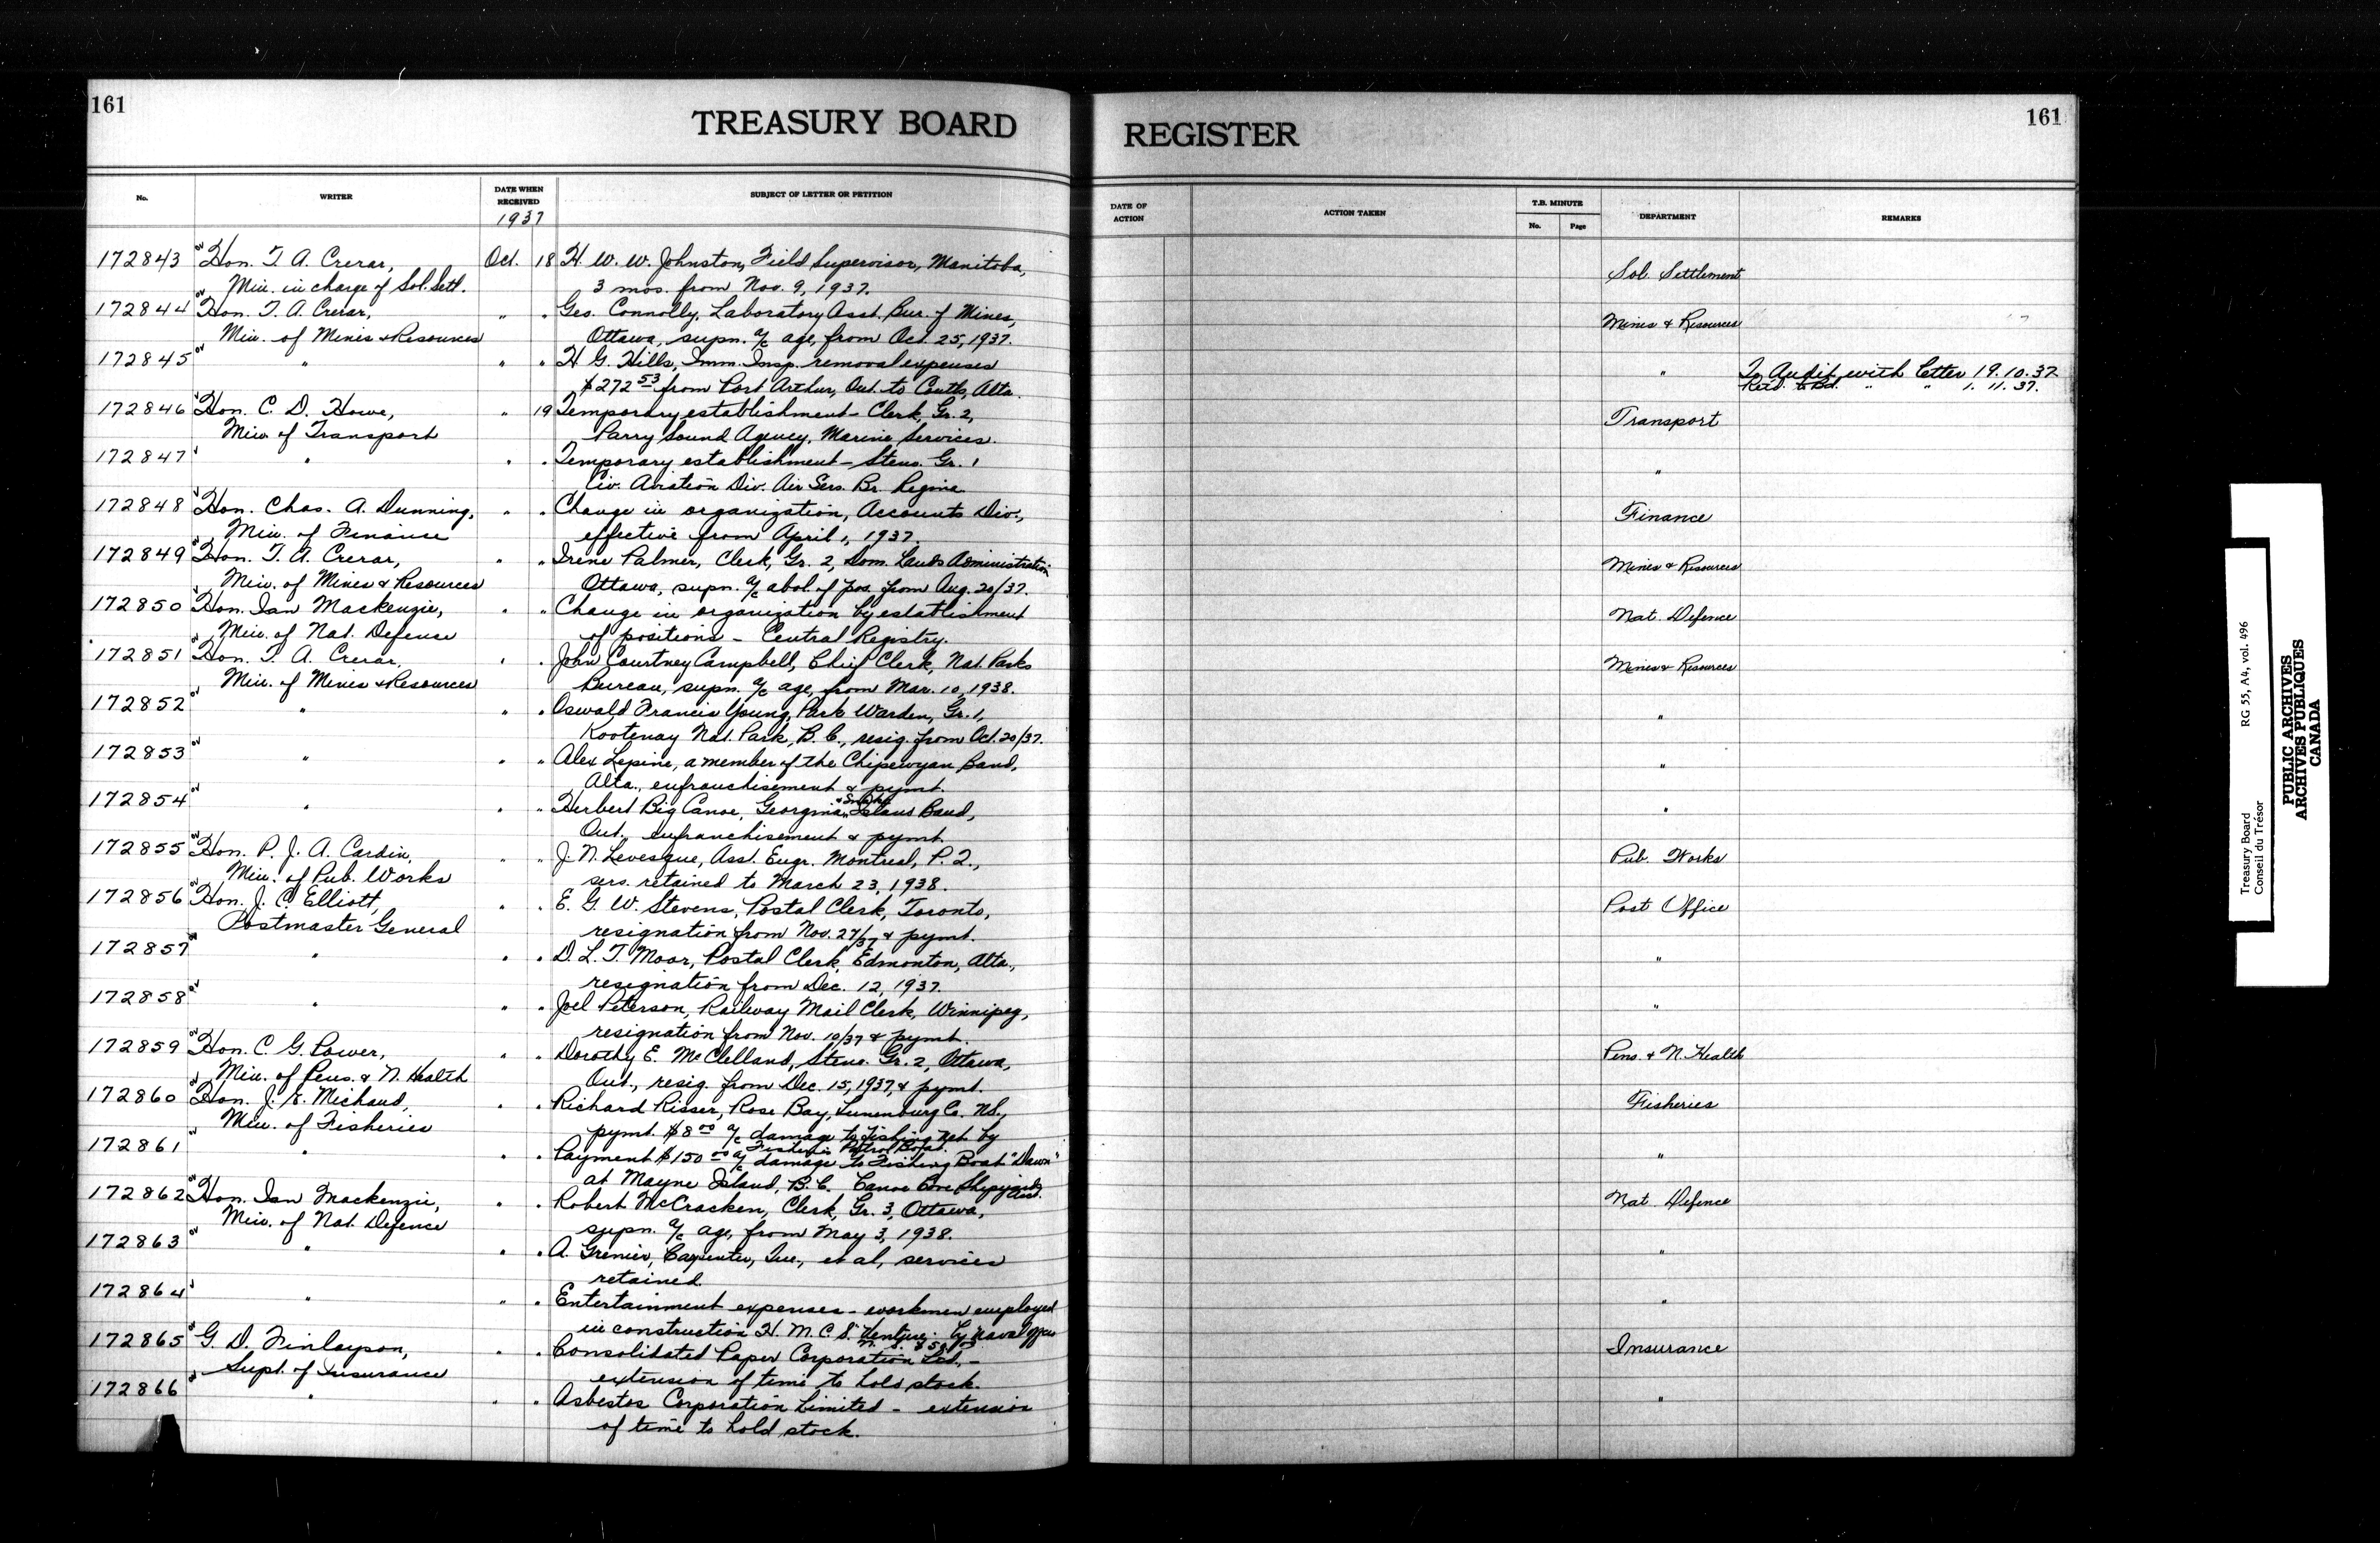 161
TREASURY BOARD
No.
WRITER
DATE WHEN RECEIVED
SUBJECT OF LETTER OR PETITION
1937
172843 Hon. T. A. Crerar, Oct. 18 H. W. W. Johnston, Field Supervisor, Manitoba,
Min. in charge of Sol. Setl. 3 mos. from Nov. 9, 1937.
172844 Hon. T. A. Crerar, " " Geo. Connolly, Laboratory Asst. Bur. of Mines,
Min. of Mines & Resources Ottawa, supn. a/c age, from Oct. 25, 1937.
172845 " " " H. G. Hills, Imm. Insp. removal expenses
$272 53 from Port Arthur, Ont. to Coutts, Alta.
172846 Hon. C. D. Howe, " 19 Temporary establishment - Clerk, Gr. 2,
Min. of Transport Parry Sound Agency, Marine Services.
172847 " " " Temporary establishment - Steno. Gr. 1
Civ. Aviation Div. Air Serv. Br. Regina
172848 Hon. Chas. A. Dunning, " " Change in organization, Accounts Div.,
Min. of Finance effective from April 1, 1937.
172849 Hon. T. A. Crerar, " " Irene Palmer, Clerk, Gr. 2, Dom. Lands Administration
Min. of Mines & Resources Ottawa, supn. a/c abol. of pos. from Aug. 20/37.
172850 Hon. Ian Mackenzie, " " Change in organization by establishment
Min. of Nat. Defense of positions - Central Registry.
172851 Hon. T. A. Crerar, " " John Courtney Campbell, Chief Clerk, Nat. Parks
Min. of Mines & Resources Bureau, supn. a/c age, from Mar. 10, 1938.
172852 " " " Oswald Francis Young, Park Warden, Gr. 1,
Kootenay Nat. Park, B. C., resig. from Oct. 20/37.
172853 " " " Alex Lepine, a member of the Chipewyan Band,
Alta., enfranchisement & pymt.
172854 " " " Herbert Big Canoe, Georgina & Snake Island Band,
Ont., enfranchisement & pymt.
172855 Hon. P. J. A. Cardin, " " J. N. Levesque, Asst. Engr. Montreal, P. Q.,
Min. of Pub. Works sers. retained to March 23, 1938.
172856 Hon. J. C. Elliott, " " E. G. W. Stevens, Postal Clerk, Toronto,
Postmaster General resignation from Nov. 27/37 & pymt.
172857 " " " D. L. T. Moor, Postal Clerk, Edmonton, Alta.,
resignation from Dec. 12, 1937.
172858 " " " Joel Peterson, Railway Mail Clerk, Winnipeg,
resignation from Nov. 10/37 & pymt.
172859 Hon. C. G. Power, " " Dorothy E. McClelland, Steno. Gr. 2, Ottawa,
Min. of Pens. & N. Health Ont., resig. from Dec. 15, 1937, & pymt.
172860 Hon. J. E. Michaud, " " Richard Risser, Rose Bay, Lunenburg Co. N.S.,
Min. of Fisheries pymt. $8 00 a/c damage to fishing net by
Fisheries Patrol Boat.
172861 " " " Payment $150 00 a/c damage to Fishing Boat "Dawn"
at Mayne Island, B. C. Canoe Cove Shipyards
172862 Hon. Ian Mackenzie, " " Robert McCracken, Clerk, Gr. 3, Ottawa,
Min. of Nat. Defence supn. a/c age, from May 3, 1938.
172863 " " " A. Grenier, Carpenter, Que., et al, services
retained.
172864 " " " Entertainment expenses - workmen employed
in construction H. M. C. S. "Venture" by Naval
172865 G. D. Finlayson, " " Consolidated Paper Corporation Ltd. -
Supt. of Insurance extension of time to hold stock.
172866 " " " Asbestos Corporation Limited - extension
of time to hold stock.
REGISTER
161
DATE OF ACTION
ACTION TAKEN
T.B. MINUTE
No.
Page
DEPARTMENT
REMARKS
Sol. Settlement
Mines & Resources
" To Audit with letter 19.10.37
Retd. to Bd. " " 1. 11. 37.
Transport
"
Finance
Mines & Resources
Nat. Defence
Mines & Resources
"
"
"
Pub. Works
Post Office
"
"
Pens. & N. Health
Fisheries
"
Nat. Defence
"
"
Insurance
"
Treasury Board RG 55, A4, vol. 496
Conseil du Trésor
PUBLIC ARCHIVES
ARCHIVES PUBLIQUES
CANADA